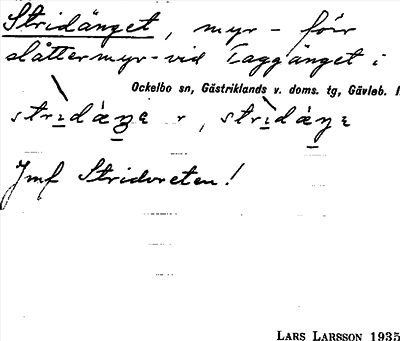 Stridänget, myr - förr
slåttermyr - vid Taggänget i
Ockelbo sn, Gästriklands v. doms. tg, Gävleb. l
Jmf Stridoreten!
LARS LARSSON 1935